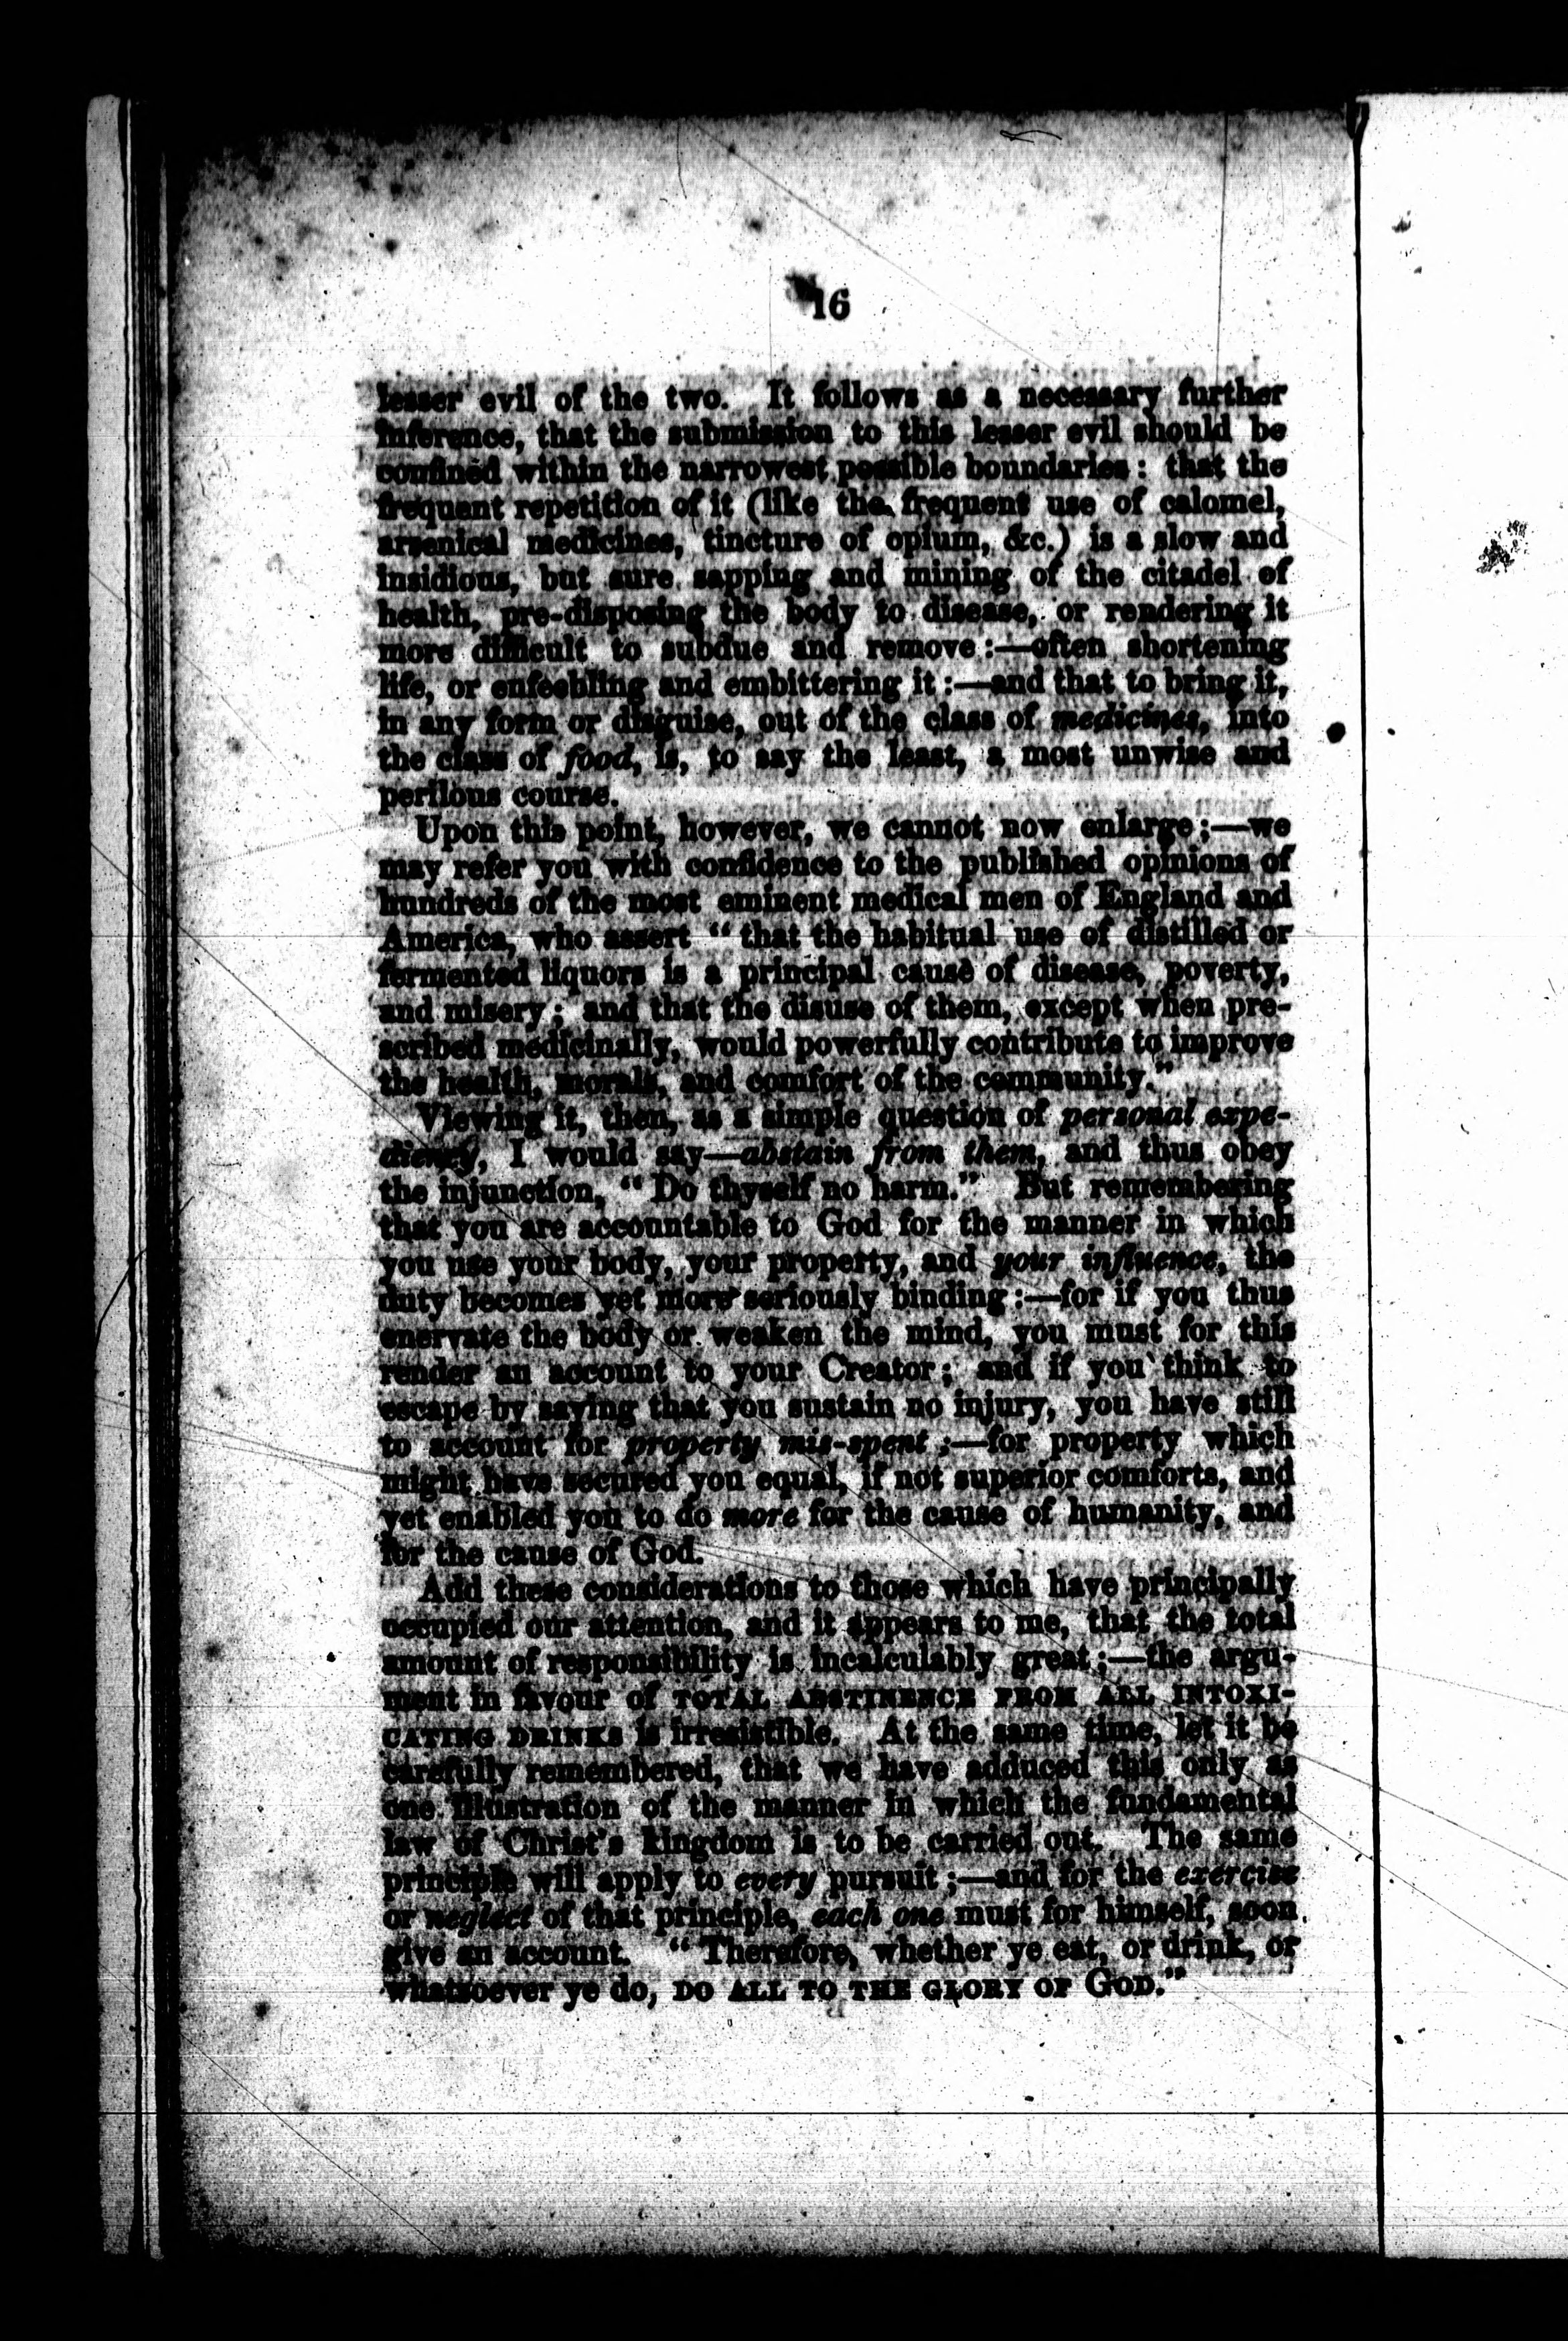 16
lesser evil of the two. It follows as a necessary further
inference, that the submission to this lesser evil should be
confined within the narrowest possible boundaries: that the
frequent repetition of it (like the frequent use of calomel,
arsenical medicines, tincture of opium, &c.) is a slow and
insidious, but sure sapping and mining of the citadel of
health, pre-disposing the body to disease, or rendering it
more difficult to subdue and remove:—often shortening
life, or enfeebling and embittering it:—and that to bring it,
in any form or disguise, out of the class of medicines, into
the class of food, is, to say the least, a most unwise and
perilous course.
Upon this point, however, we cannot now enlarge;—we
may refer you with confidence to the published opinions of
hundreds of the most eminent medical men of England and
America, who assert "that the habitual use of distilled or
fermented liquors is a principal cause of disease, poverty,
and misery; and that the disuse of them, except when pre-
scribed medicinally, would powerfully contribute to improve
the health, morals, and comfort of the community."
Viewing it, then, as a simple question of personal expe-
diency, I would say—abstain from them, and thus obey
the injunction, "Do thyself no harm." But remembering
that you are accountable to God for the manner in which
you use your body, your property, and your influence, the
duty becomes yet more seriously binding:—for if you thus
enervate the body or weaken the mind, you must for this
render an account to your Creator; and if you think to
escape by saying that you sustain no injury, you have still
to account for property mis-spent;—for property which
might have secured you equal, if not superior comforts, and
yet enabled you to do more for the cause of humanity, and
for the cause of God.
Add these considerations to those which have principally
occupied our attention, and it appears to me, that the total
amount of responsibility is incalculably great;—the argu-
ment in favour of TOTAL ABSTINENCE FROM ALL INTOXI-
CATING DRINKS is irresistible. At the same time, let it be
carefully remembered, that we have adduced this only as
one illustration of the manner in which the fundamental
law of Christ's kingdom is to be carried out. The same
principle will apply to every pursuit;—and for the exercise
or neglect of that principle, each one must for himself, soon
give an account. "Therefore, whether ye eat, or drink, or
whatsoever ye do, DO ALL TO THE GLORY OF GOD."